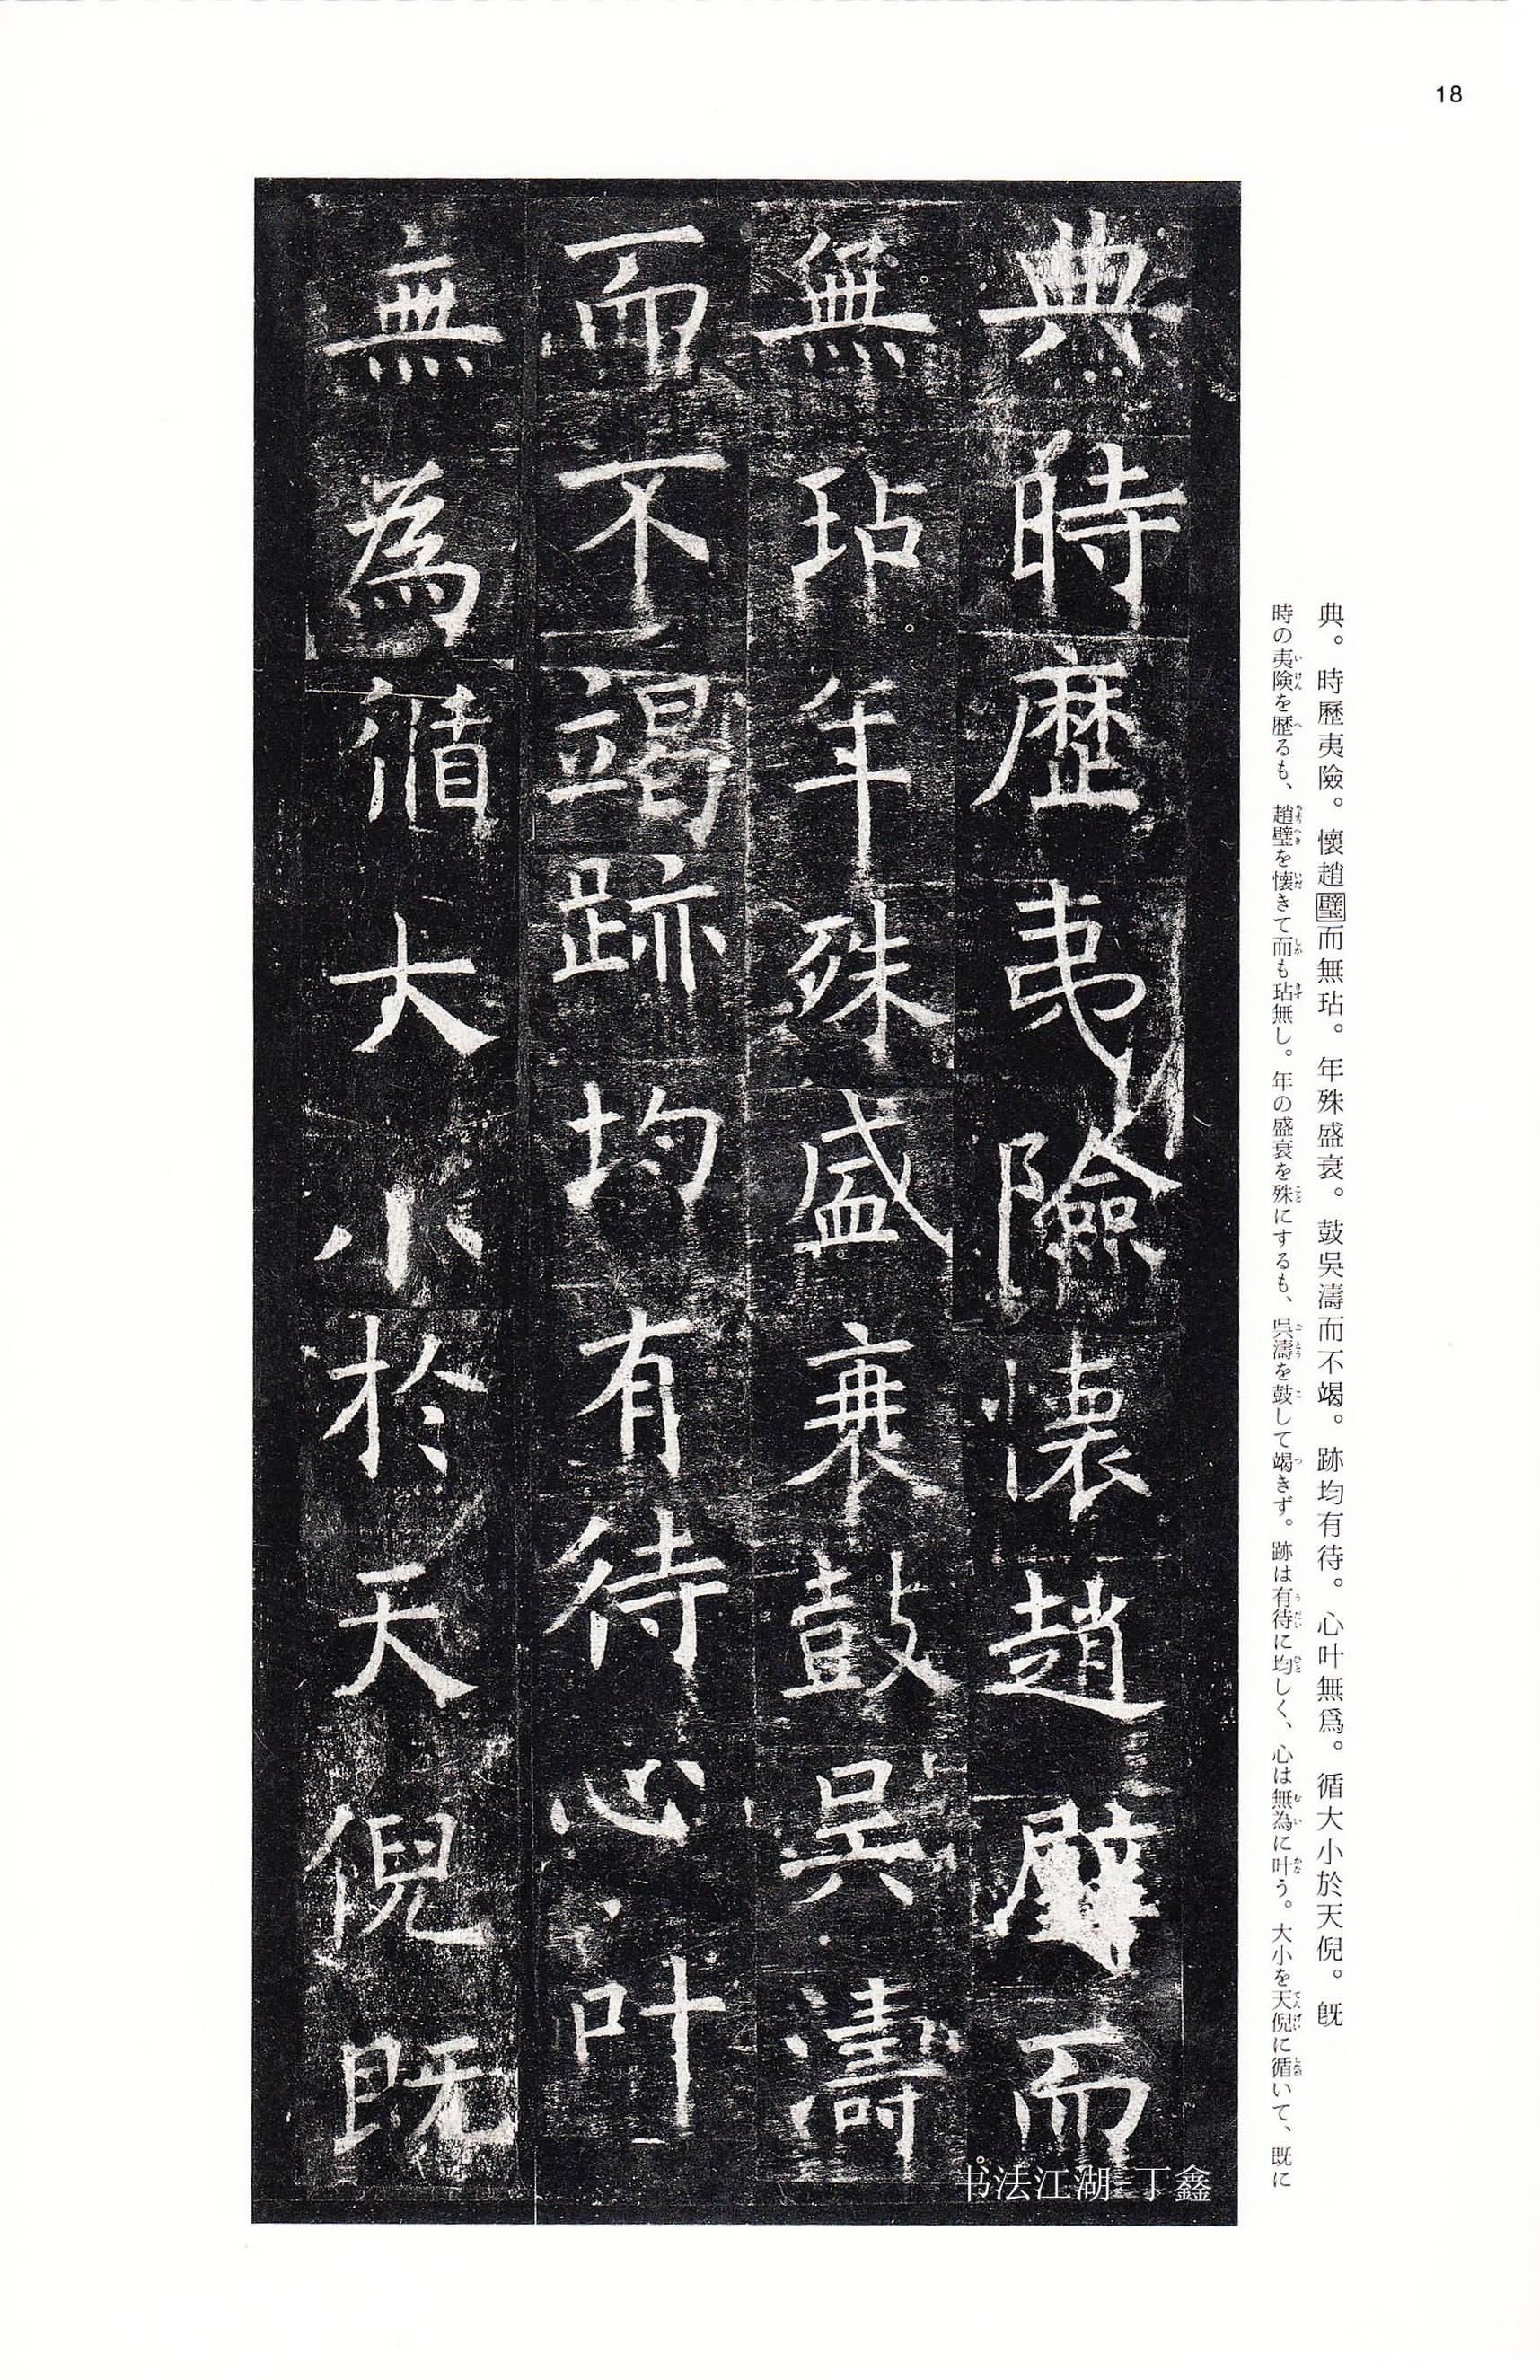 18
典。時歷夷險。懷趙璧而無玷。年殊盛衰。鼓吳濤而不竭。跡均有待。心叶無爲。循大小於天倪。既
時の夷険を歴るも、趙璧を懐きて而も玷無し。年の盛衰を殊にするも、呉濤を鼓して竭きず。跡は有待に均しく、心は無為に叶う。大小を天倪に循いて、既に
典時歷夷險懷趙璧而
無玷年殊盛衰鼓吳濤
而不竭跡均有待心叶
無為循大小於天倪既
书法江湖 丁鑫